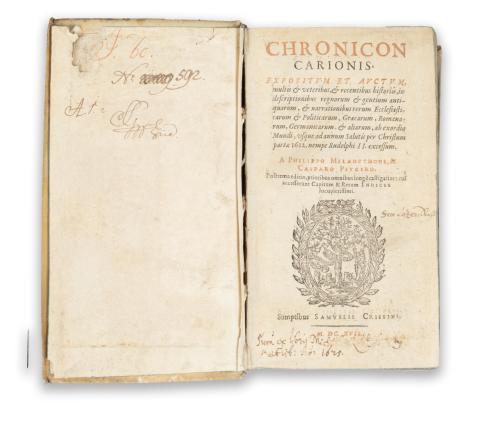 J. 6c.
No 592.
At:
CHRONICON
CARIONIS.
EXPOSITVM ET AVCTVM,
multis & veteribus, & recentibus historiis, in
descriptionibus regnorum & gentium anti-
quarum, & narrationibus rerum Ecclesiasti-
carum & Politicarum, Græcarum, Romana-
rum, Germanicarum, & aliarum, ab exordio
Mundi, vsque ad annum Salutis per Christum
partæ 1612. nempe Rudolphi II. excessum.
A PHILIPPO MELANCTHONE, &
CASPARO PEVCERO.
Postrema editio, prioribus omnibus longè castigatior: cui
accesserunt Capitum & Rerum INDICES
locupletissimi.
Sumptibus SAMVELIS CRISPINI,
M. DC. XVII.
1625.